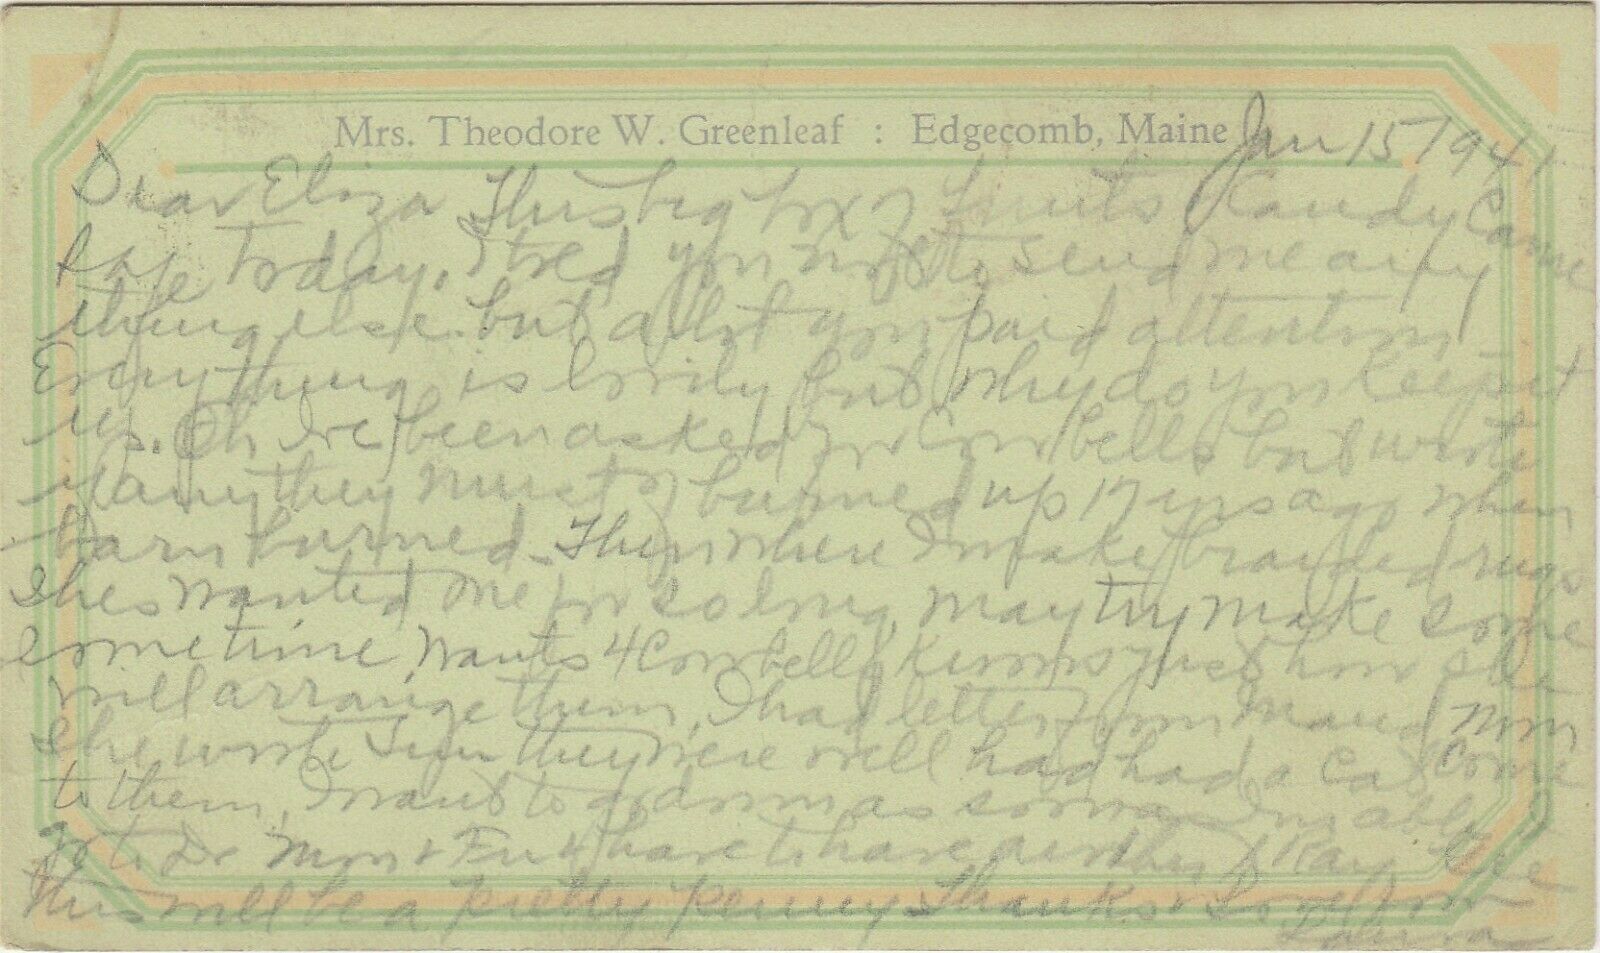 Mrs. Theodore W. Greenleaf : Edgecomb, Maine Jan 15 1941
Dear Eliza This big box of fruits Kandy Came
safe today. I told you not to send me any
thing else. but a lot you paid attention
Everything is lovily but why do you keep it
up. Oh Ive been asked for Cow bells but wrote
if any they must of burned up 17 yrs ago when
barn burned. Then where I make braided rugs
shes wanted me for so long, may try make some
sometime Wants 4 Cow bells Knows just how she
will arrange them, I had letter from Maud Mon
she wrote Sun they were well had had a Cat Come
to them, I want to go down as soon as Im able
go to Dr Mon & Fri & have to have another X Ray
this will be a pretty penny Thanks & Love from
Laura